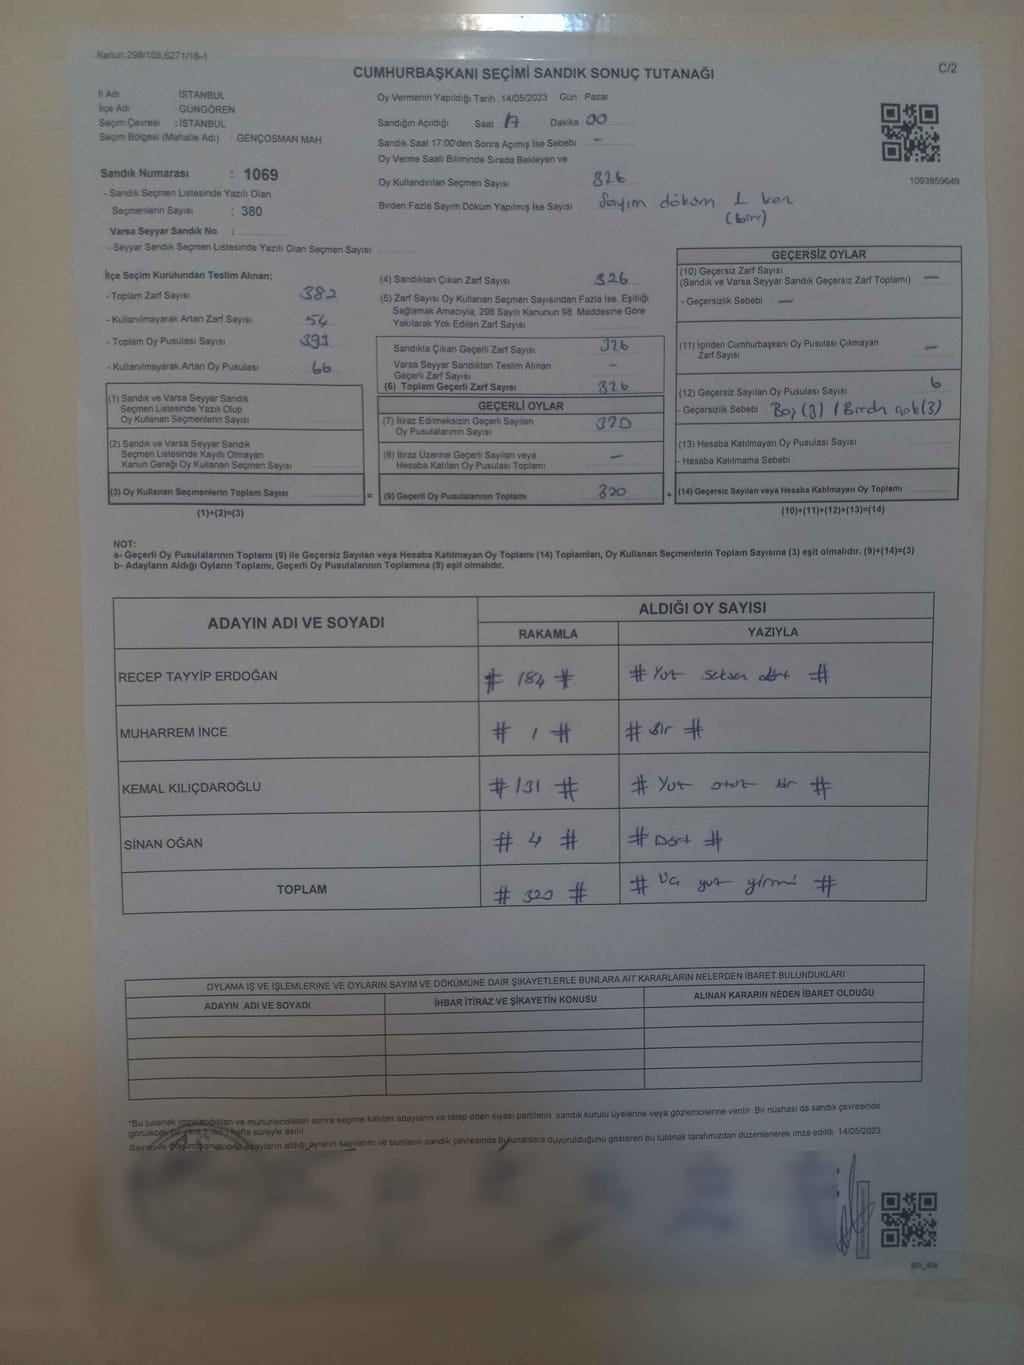 Kanun 298/105,6271/18-1
C/2
CUMHURBAŞKANI SEÇİMİ SANDIK SONUÇ TUTANAĞI
İl Adı : İSTANBUL
İlçe Adı : GÜNGÖREN
Seçim Çevresi : İSTANBUL
Seçim Bölgesi (Mahalle Adı) : GENÇOSMAN MAH
Sandık Numarası : 1069
- Sandık Seçmen Listesinde Yazılı Olan
Seçmenlerin Sayısı : 380
Varsa Seyyar Sandık No :
- Seyyar Sandık Seçmen Listesinde Yazılı Olan Seçmen Sayısı:
Oy Vermenin Yapıldığı Tarih :14/05/2023 Gün : Pazar
Sandığın Açıldığı Saat : 17 Dakika : 00
Sandık Saat 17:00'den Sonra Açılmış İse Sebebi : —
Oy Verme Saati Bitiminde Sırada Bekleyen ve
Oy Kullandırılan Seçmen Sayısı : 326
Birden Fazla Sayım Döküm Yapılmış İse Sayısı : Sayım döküm 1 kez
(bir)
1093859649
İlçe Seçim Kurulundan Teslim Alınan;
- Toplam Zarf Sayısı : 382
- Kullanılmayarak Artan Zarf Sayısı : 54
- Toplam Oy Pusulası Sayısı : 393
- Kullanılmayarak Artan Oy Pusulası : 66
(1) Sandık ve Varsa Seyyar Sandık
Seçmen Listesinde Yazılı Olup
Oy Kullanan Seçmenlerin Sayısı :
(2) Sandık ve Varsa Seyyar Sandık
Seçmen Listesinde Kayıtlı Olmayan
Kanun Gereği Oy Kullanan Seçmen Sayısı :
(3) Oy Kullanan Seçmenlerin Toplam Sayısı :
(1)+(2)=(3)
=
(4) Sandıktan Çıkan Zarf Sayısı : 326
(5) Zarf Sayısı Oy Kullanan Seçmen Sayısından Fazla İse, Eşitliği
Sağlamak Amacıyla; 298 Sayılı Kanunun 98. Maddesine Göre
Yakılarak Yok Edilen Zarf Sayısı :
Sandıkta Çıkan Geçerli Zarf Sayısı : 326
Varsa Seyyar Sandıktan Teslim Alınan
Geçerli Zarf Sayısı : —
(6) Toplam Geçerli Zarf Sayısı : 326
GEÇERLİ OYLAR
(7) İtiraz Edilmeksizin Geçerli Sayılan
Oy Pusulalarının Sayısı : 320
(8) İtiraz Üzerine Geçerli Sayılan veya
Hesaba Katılan Oy Pusulası Toplamı : —
(9) Geçerli Oy Pusulalarının Toplamı : 320
+
GEÇERSİZ OYLAR
(10) Geçersiz Zarf Sayısı
(Sandık ve Varsa Seyyar Sandık Geçersiz Zarf Toplamı) : —
- Geçersizlik Sebebi : —
(11) İçinden Cumhurbaşkanı Oy Pusulası Çıkmayan
Zarf Sayısı : —
(12) Geçersiz Sayılan Oy Pusulası Sayısı : 6
- Geçersizlik Sebebi : Boş (3) / Birden çok (3)
(13) Hesaba Katılmayan Oy Pusulası Sayısı :
- Hesaba Katılmama Sebebi :
(14) Geçersiz Sayılan veya Hesaba Katılmayan Oy Toplamı :
(10)+(11)+(12)+(13)=(14)
NOT:
a- Geçerli Oy Pusulalarının Toplamı (9) ile Geçersiz Sayılan veya Hesaba Katılmayan Oy Toplamı (14) Toplamları, Oy Kullanan Seçmenlerin Toplam Sayısına (3) eşit olmalıdır. (9)+(14)=(3)
b- Adayların Aldığı Oyların Toplamı, Geçerli Oy Pusulalarının Toplamına (9) eşit olmalıdır.
ADAYIN ADI VE SOYADI
ALDIĞI OY SAYISI
RAKAMLA YAZIYLA
RECEP TAYYİP ERDOĞAN # 184 # # Yüz seksen dört #
MUHARREM İNCE # 1 # # Bir #
KEMAL KILIÇDAROĞLU # 131 # # Yüz otuz bir #
SİNAN OĞAN # 4 # # Dört #
TOPLAM # 320 # # Üç yüz yirmi #
OYLAMA İŞ VE İŞLEMLERİNE VE OYLARIN SAYIM VE DÖKÜMÜNE DAİR ŞİKAYETLERLE BUNLARA AİT KARARLARIN NELERDEN İBARET BULUNDUKLARI
ADAYIN ADI VE SOYADI İHBAR İTİRAZ VE ŞİKAYETİN KONUSU ALINAN KARARIN NEDEN İBARET OLDUĞU
*Bu tutanak imzalandıktan ve mühürlendikten sonra seçime katılan adayların ve talep eden siyasi partilerin sandık kurulu üyelerine veya gözlemcilerine verilir. Bir nüshası da sandık çevresinde
görülecek bir yere 1 (bir) hafta süreyle asılır.
Sayım ve döküm sonucunda adayların aldığı oyların sayılarını ve bunların sandık çevresinde bulunanlara duyurulduğunu gösteren bu tutanak tarafımızdan düzenlenerek imza edildi. 14/05/2023